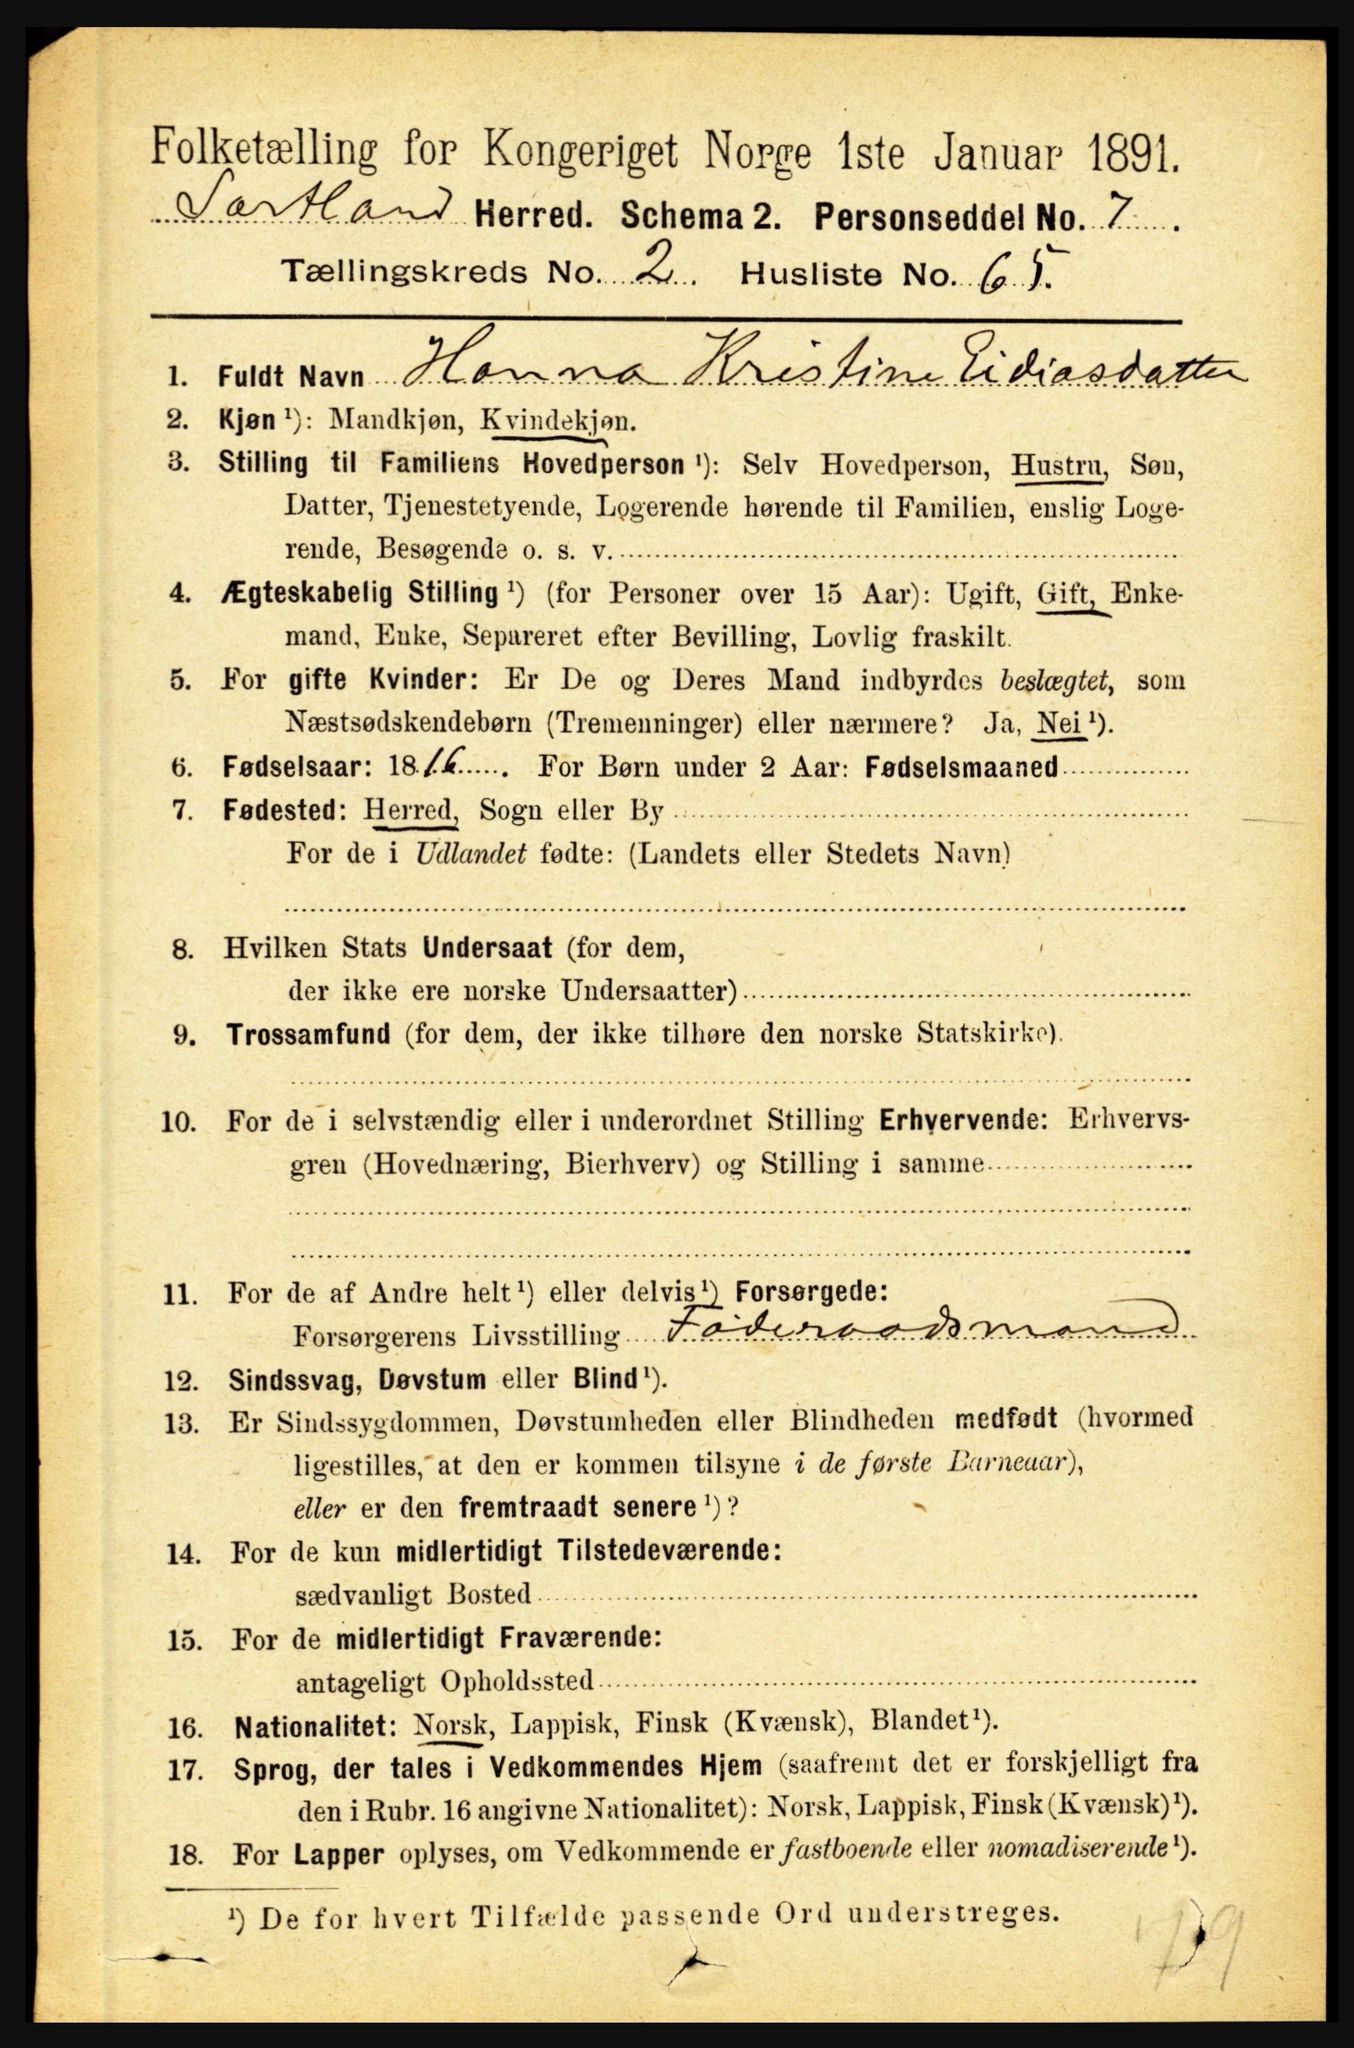 Folketælling for Kongeriget Norge 1ste Januar 1891.
Sortland Herred. Schema 2. Personseddel No. 7.
Tællingskreds No. 2. Husliste No. 65.
1. Fuldt Navn Hanna Kristine Eidiasdatter
2. Kjøn ¹): Mandkjøn, Kvindekjøn.
3. Stilling til Familiens Hovedperson ¹): Selv Hovedperson, Hustru, Søn,
Datter, Tjenestetyende, Logerende hørende til Familien, enslig Loge-
rende, Besøgende o. s. v.
4. Ægteskabelig Stilling ¹) (for Personer over 15 Aar): Ugift, Gift, Enke-
mand, Enke, Separeret efter Bevilling, Lovlig fraskilt.
5. For gifte Kvinder: Er De og Deres Mand indbyrdes beslægtet, som
Næstsødskendebørn (Tremenninger) eller nærmere? Ja, Nei ¹).
6. Fødselsaar: 1816. For Børn under 2 Aar: Fødselsmaaned
7. Fødested: Herred, Sogn eller By
For de i Udlandet fødte: (Landets eller Stedets Navn)
8. Hvilken Stats Undersaat (for dem,
der ikke ere norske Undersaatter)
9. Trossamfund (for dem, der ikke tilhøre den norske Statskirke).
10. For de i selvstændig eller i underordnet Stilling Erhvervende: Erhvervs-
gren (Hovednæring, Bierhverv) og Stilling i samme
11. For de af Andre helt ¹) eller delvis ¹) Forsørgede:
Forsørgerens Livsstilling Föderaadsmand
12. Sindssvag, Døvstum eller Blind ¹).
13. Er Sindssygdommen, Døvstumheden eller Blindheden medfødt (hvormed
ligestilles, at den er kommen tilsyne i de første Barneaar),
eller er den fremtraadt senere ¹)?
14. For de kun midlertidigt Tilstedeværende:
sædvanligt Bosted
15. For de midlertidigt Fraværende:
antageligt Opholdssted
16. Nationalitet: Norsk, Lappisk, Finsk (Kvænsk), Blandet ¹).
17. Sprog, der tales i Vedkommendes Hjem (saafremt det er forskjelligt fra
den i Rubr. 16 angivne Nationalitet): Norsk, Lappisk, Finsk (Kvænsk) ¹).
18. For Lapper oplyses, om Vedkommende er fastboende eller nomadiserende ¹).
¹) De for hvert Tilfælde passende Ord understreges.